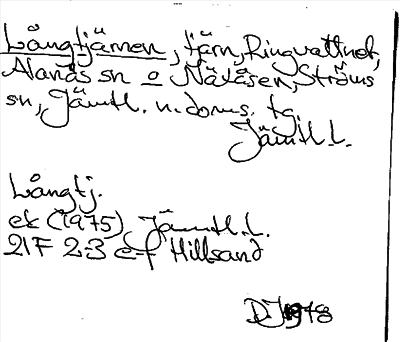 Långtjärnen, tjärn, Ringvattnet,
Alanäs sn o Näsåsen, Ströms
sn, Jämtl. n. doms. tg.
Jämtl. l.
Långtj.
ek (1975) Jämtl. l.
21F 2-3 e-f Hillsand
DJ 1978